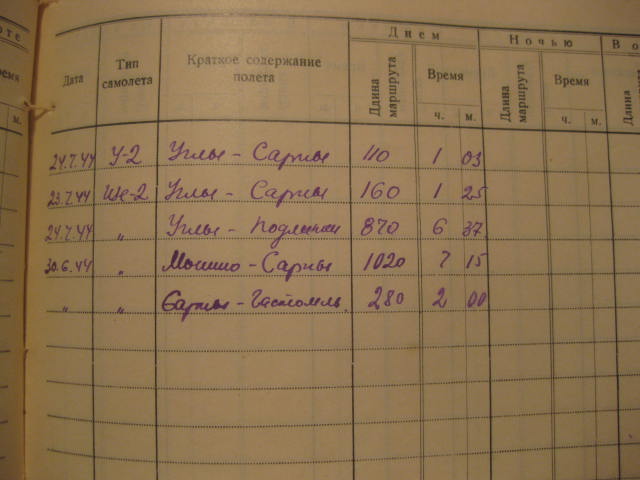 Дата Тип самолета Краткое содержание полета Днем Длина маршрута Время ч. м. Ночью Длина маршрута Время ч. м. Длина
24.7.44 У-2 Углы - Сарны 110 1 03
23.7.44 Ще-2 Углы - Сарны 160 1 25
24.7.44 " Углы - 870 6 37
30.6.44 " - Сарны 1020 7 15
" " Сарны - Гастомель 280 2 00